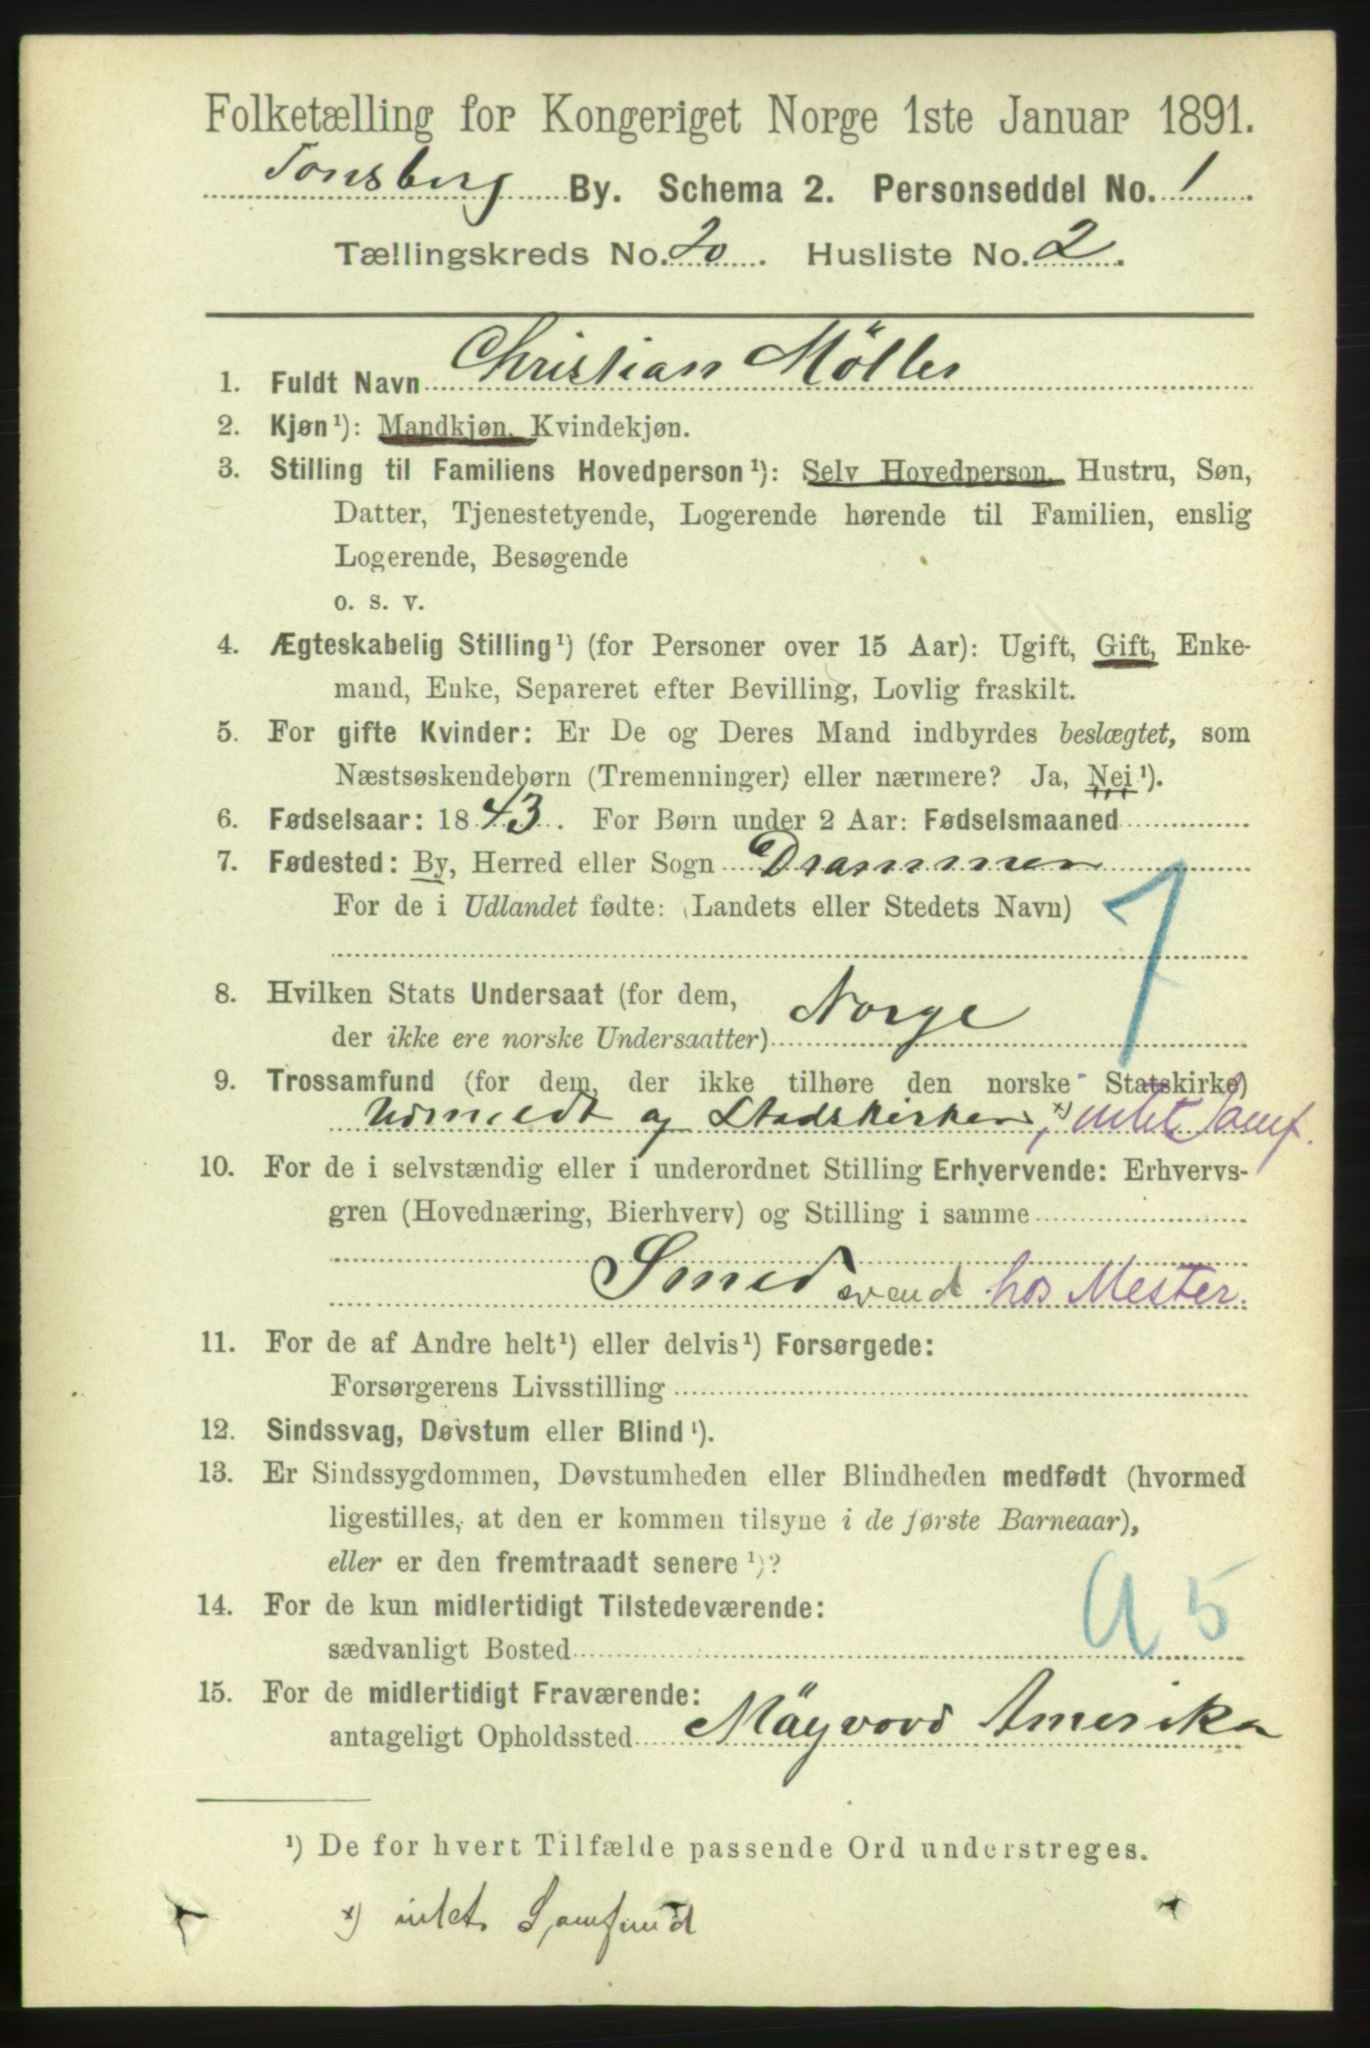 Folketælling for Kongeriget Norge 1ste Januar 1891.
Tønsberg By. Schema 2. Personseddel No. 1.
Tællingskreds No. 20. Husliste No. 2.
1. Fuldt Navn Christian Möller
2. Kjøn¹): Mandkjøn, Kvindekjøn.
3. Stilling til Familiens Hovedperson¹): Selv Hovedperson, Hustru, Søn,
Datter, Tjenestetyende, Logerende hørende til Familien, enslig
Logerende, Besøgende
o. s. v.
4. Ægteskabelig Stilling¹) (for Personer over 15 Aar): Ugift, Gift, Enke-
mand, Enke, Separeret efter Bevilling, Lovlig fraskilt.
5. For gifte Kvinder: Er De og Deres Mand indbyrdes beslægtet, som
Næstsøskendebørn (Tremenninger) eller nærmere? Ja, Nei¹).
6. Fødselsaar: 1843. For Børn under 2 Aar: Fødselsmaaned
7. Fødested: By, Herred eller Sogn Drammen
For de i Udlandet fødte: (Landets eller Stedets Navn)
8. Hvilken Stats Undersaat (for dem, Norge
der ikke ere norske Undersaatter)
9. Trossamfund (for dem, der ikke tilhøre den norske Statskirke)
Udmeldt af Stadskirken, x) intet Samf.
10. For de i selvstændig eller i underordnet Stilling Erhvervende: Erhvervs-
gren (Hovednæring, Bierhverv) og Stilling i samme
Smed svend hos Mester.
11. For de af Andre helt¹) eller delvis¹) Forsørgede:
Forsørgerens Livsstilling
12. Sindssvag, Døvstum eller Blind¹).
13. Er Sindssygdommen, Døvstumheden eller Blindheden medfødt (hvormed
ligestilles, at den er kommen tilsyne i de første Barneaar),
eller er den fremtraadt senere¹)?
14. For de kun midlertidigt Tilstedeværende:
sædvanligt Bosted
15. For de midlertidigt Fraværende:
antageligt Opholdssted Mäyvovd Amerika
¹) De for hvert Tilfælde passende Ord understreges.
x) intet Samfund